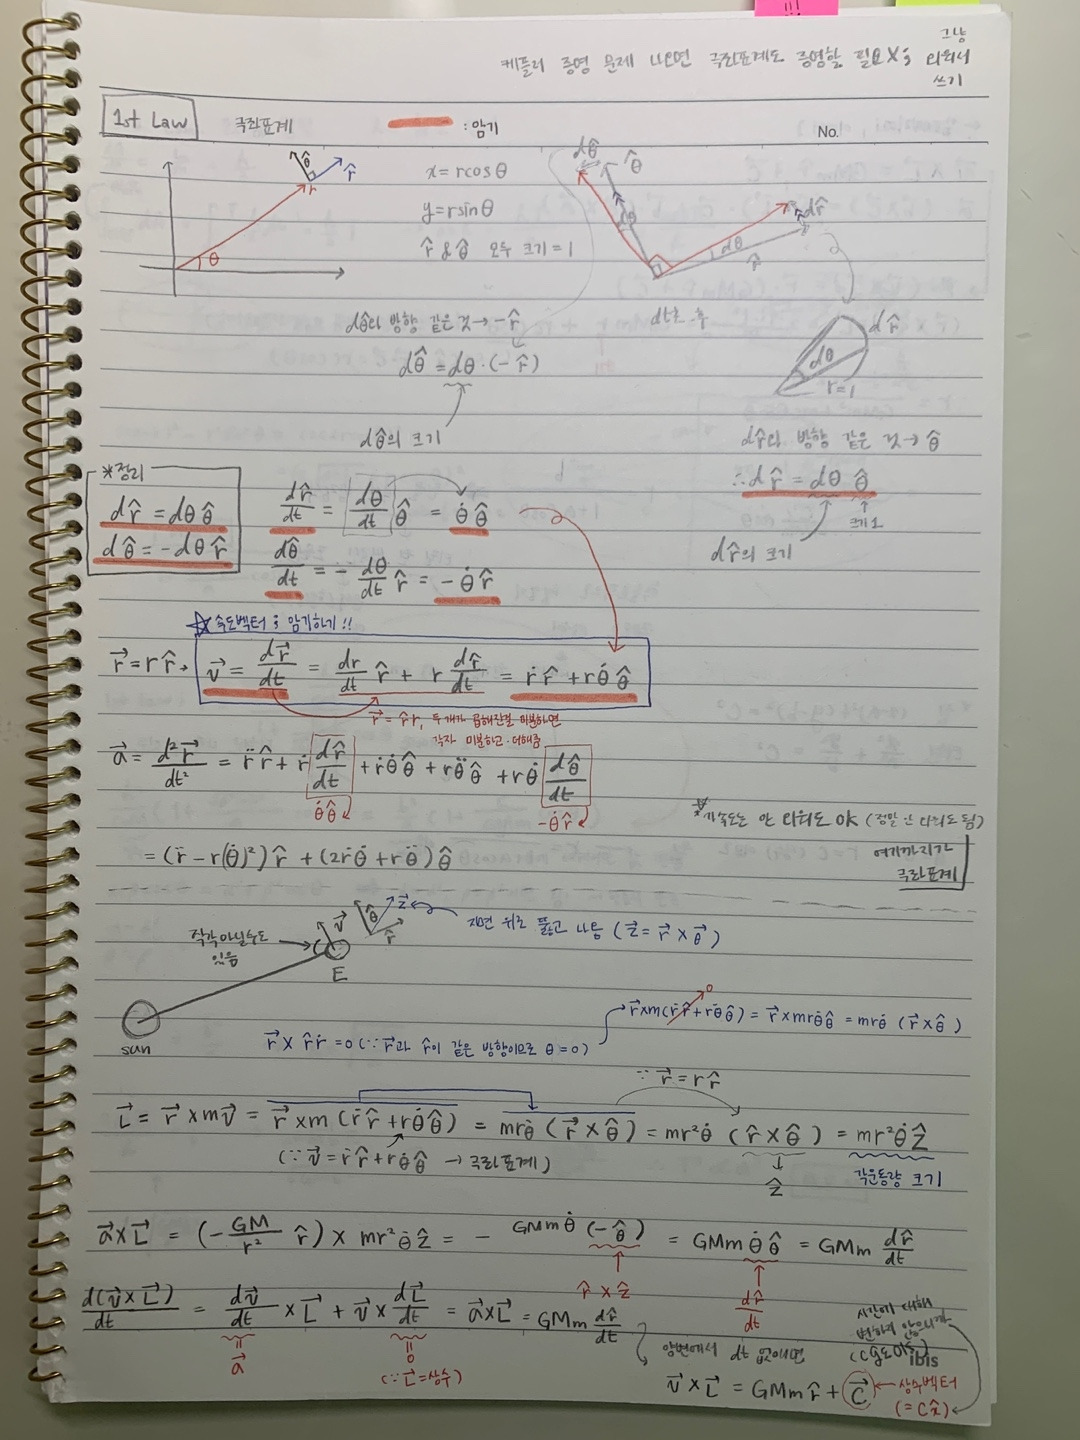 케플러 증명 문제 나오면 극좌표계도 증명할 필요X; 그냥 외워서 쓰기
1st Law 극좌표계 : 암기
No.
θ̂ r̂ r θ
x = rcosθ
y = rsinθ
r̂ & θ̂ 모두 크기 = 1
dθ̂ θ̂ dθ dr̂ dθ r̂
dt초 후
dθ̂와 방향 같은 것 → -r̂
dθ̂ = dθ·(-r̂)
dθ̂의 크기
dr̂ dθ r=1
dr̂와 방향 같은 것 → θ̂
∴ dr̂ = dθ θ̂
크기 1
dr̂의 크기
*정리
dr̂ = dθ θ̂
dθ̂ = -dθ r̂
dr̂/dt = dθ/dt θ̂ = θ̇ θ̂
dθ̂/dt = - dθ/dt r̂ = -θ̇ r̂
☆속도벡터; 암기하기!!
r⃗ = r r̂, v⃗ = dr⃗/dt = dr/dt r̂ + r dr̂/dt = ṙ r̂ + rθ̇ θ̂
r⃗ = r̂r, 두개가 곱해진걸 미분하면
각자 미분하고 더해줌
a⃗ = d²r⃗/dt² = r̈ r̂ + ṙ dr̂/dt + ṙθ̇θ̂ + rθ̈θ̂ + rθ̇ dθ̂/dt
θ̇θ̂ -θ̇r̂
☆가속도는 안 외워도 야 (정말 안 외워도 됨)
= (r̈ - r(θ̇)²) r̂ + (2ṙθ̇ + rθ̈) θ̂
여기까지가
극좌표계
직각 아닐수도 있음
v⃗ θ̂ z⃗ r̂
지면 위로 뚫고 나옴 (z⃗ = r⃗ × θ⃗)
E
sun
r⃗ × m(ṙr̂ + rθ̇θ̂) = r⃗ × mrθ̇θ̂ = mrθ̇ (r⃗ × θ̂)
0
r⃗ × r̂ṙ = 0 (∵ r⃗과 r̂이 같은 방향이므로 θ=0)
∵ r⃗ = r r̂
L⃗ = r⃗ × mv⃗ = r⃗ × m (ṙr̂ + rθ̇θ̂) = mrθ̇ (r⃗ × θ̂) = mr²θ̇ (r̂ × θ̂) = mr²θ̇ẑ
(∵ v⃗ = ṙr̂ + rθ̇θ̂ → 극좌표계)
ẑ
각운동량 크기
a⃗ × L⃗ = (-GM/r² r̂) × mr²θ̇ẑ = - GMmθ̇ (-θ̂) = GMmθ̇θ̂ = GMm dr̂/dt
r̂ × ẑ
dr̂/dt
d(v⃗×L⃗)/dt = dv⃗/dt × L⃗ + v⃗ × dL⃗/dt = a⃗×L⃗ = GMm dr̂/dt
a⃗
0
(∵ L⃗=상수)
양변에서 dt 없애면
시간에 대해
변하지 않으니까
ibis
v⃗ × L⃗ = GMm r̂ + C⃗ ← 상수벡터
(= Cx̂)